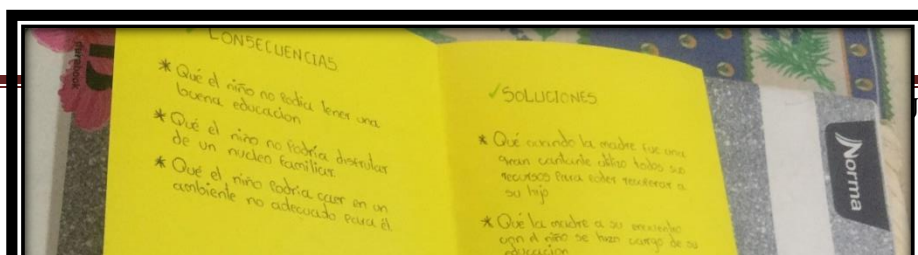 CONSECUENCIAS
* Qué el niño no podia tener una
buena educacion
* Qué el niño no podría disfrutar
de un nucleo familiar
* Qué el niño podria caer en un
ambiente no adecuado para él
✓SOLUCIONES
* Qué cuando la madre fue una
gran cantante utilizo todos sus
recursos para poder recuperar a
su hijo
* Qué la madre a su encuentro
con el niño se hizo cargo de su
educacion
Norma